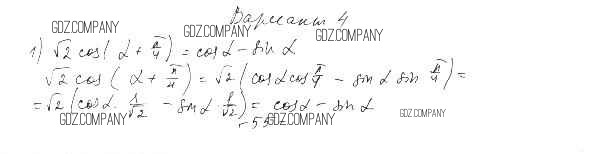 Вариант 4
GDZ.COMPANY GDZ.COMPANY GDZ.COMPANY
1) √2 cos(α + π/4) = cos α - sin α
√2 cos(α + π/4) = √2(cos α cos π/4 - sin α sin π/4) =
= √2(cos α · 1/√2 - sin α · 1/√2) = cos α - sin α
GDZ.COMPANY GDZ.COMPANY GDZ.COMPANY
- 55 -